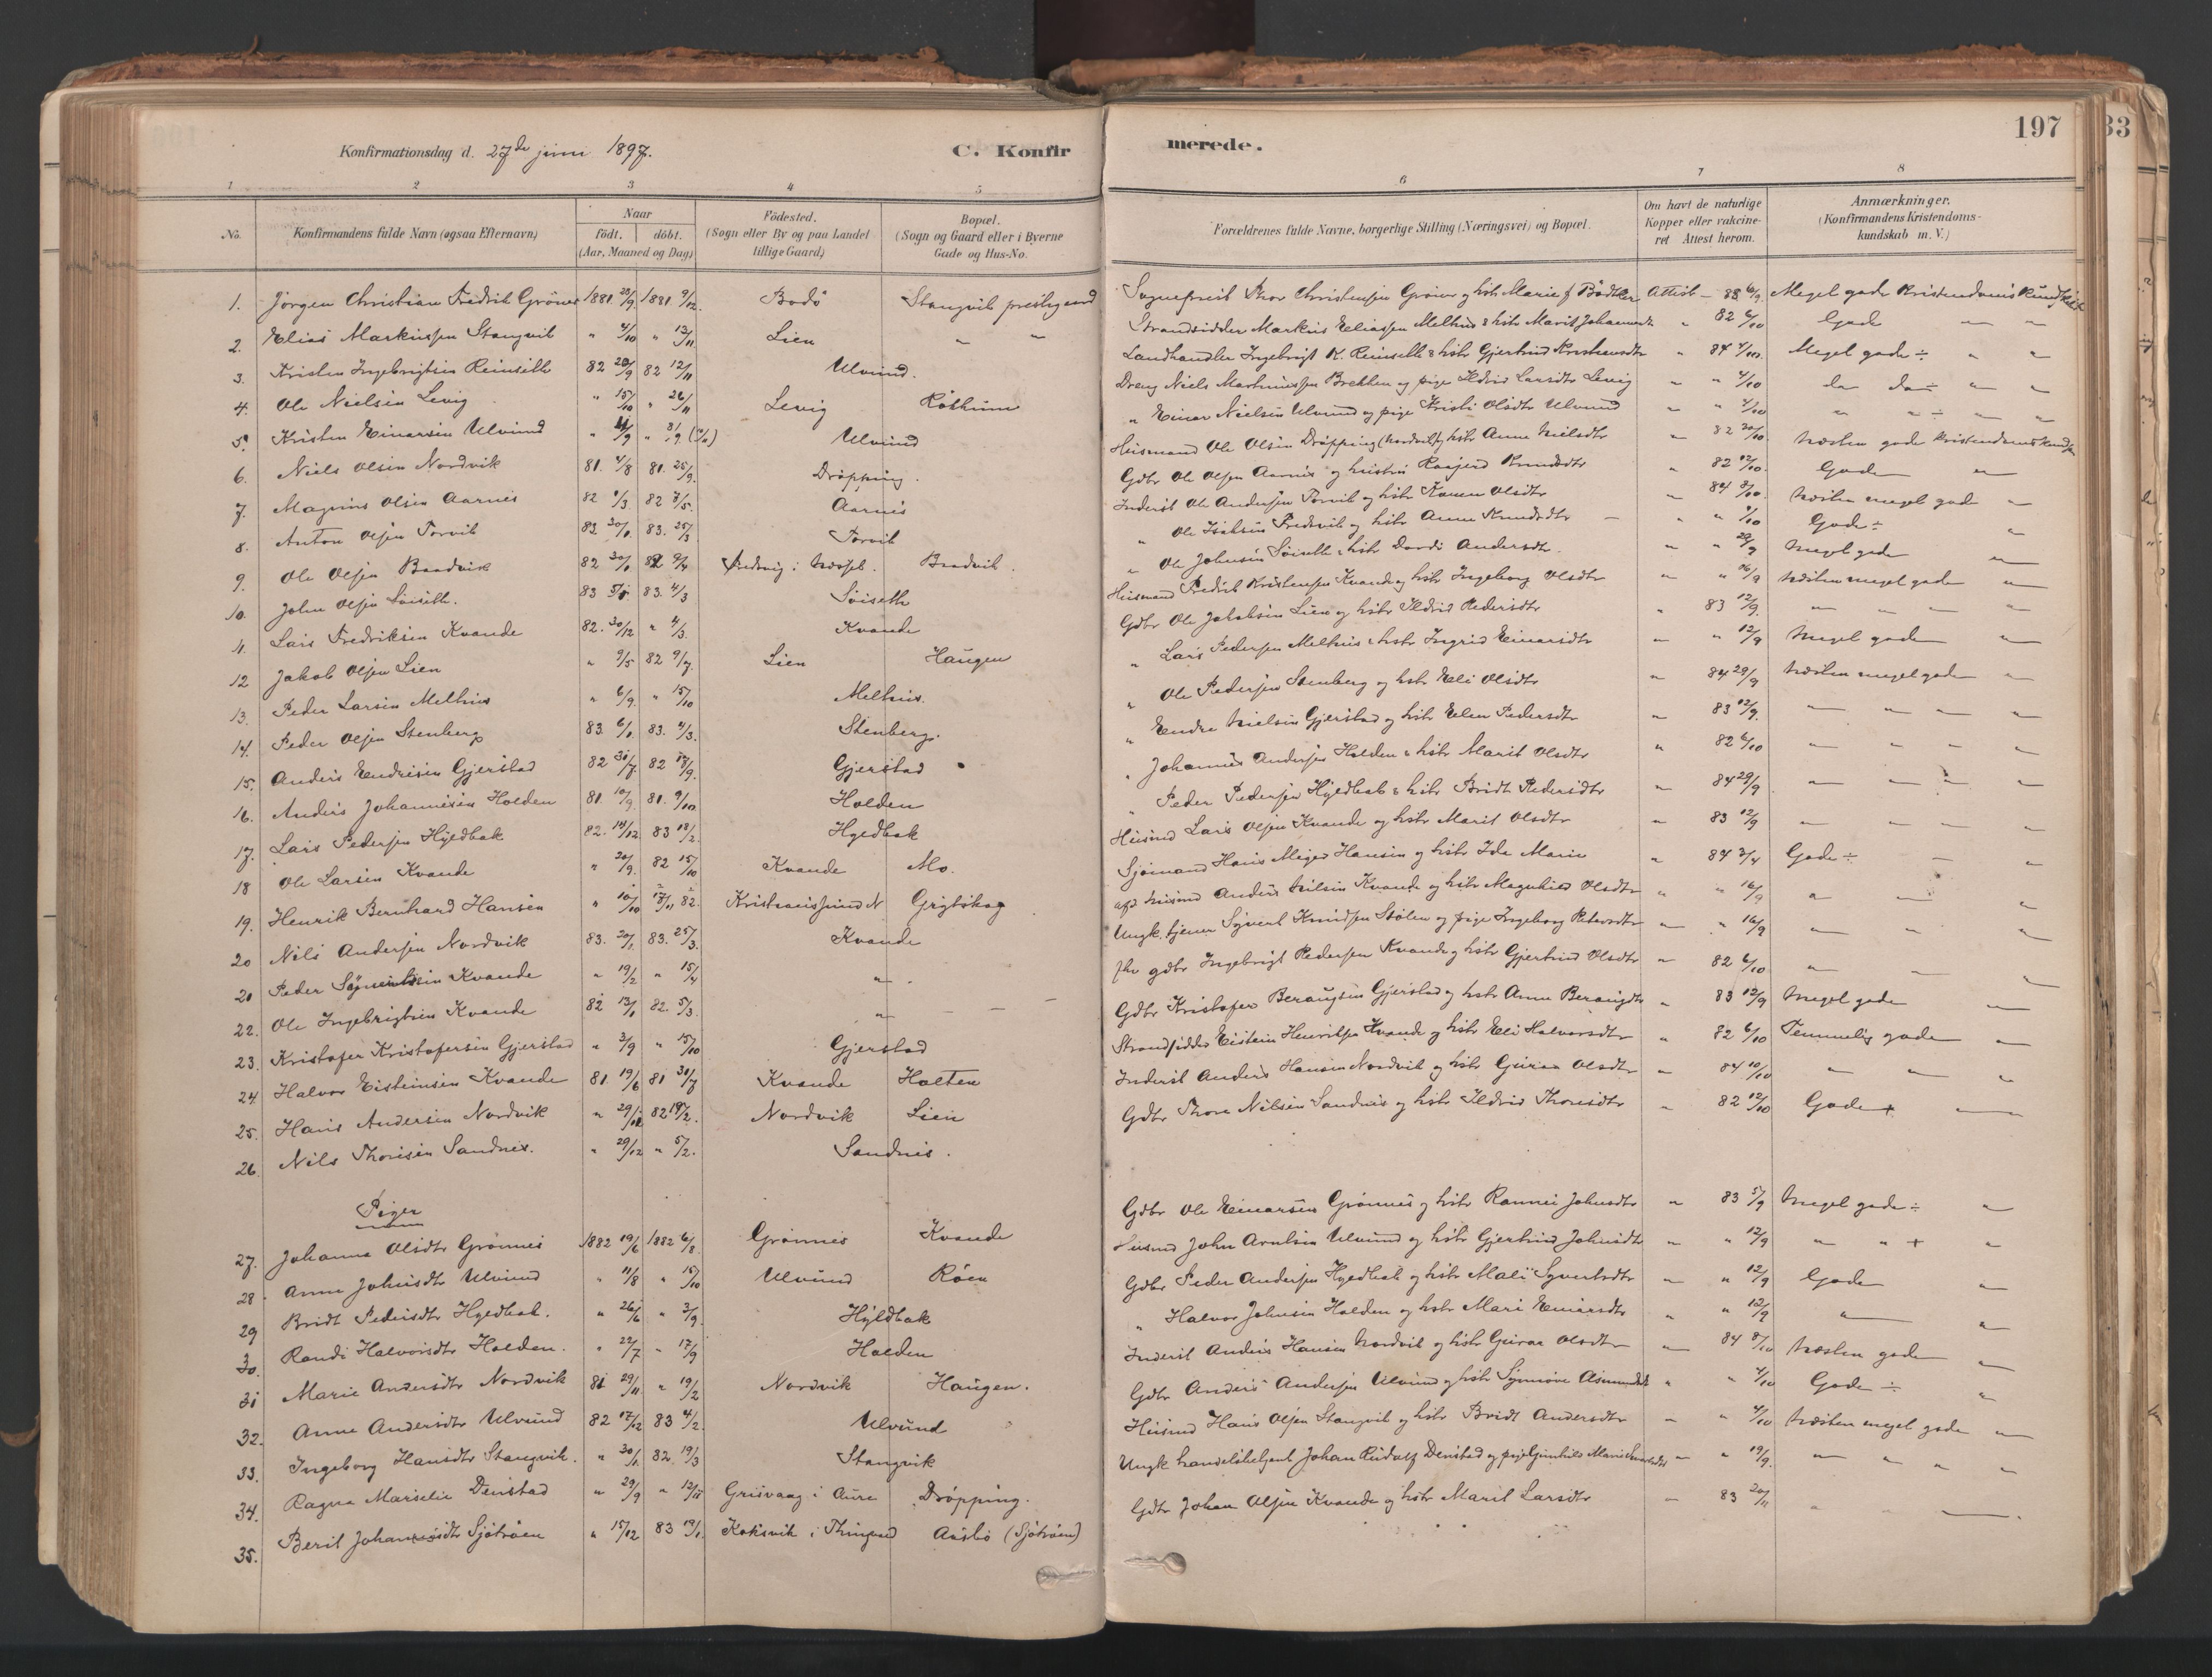 Konfirmationsdag d. 27de juni 1897.
C. Konfirmerede.
197
33
1 2 3 4 5 6 7 8
No.
Konfirmandens fulde Navn (ogsaa Efternavn)
Naar
födt. döbt.
(Aar, Maaned og Dag)
Födested.
(Sogn eller By og paa Landet
tillige Gaard)
Bopæl.
(Sogn og Gaard eller i Byerne
Gade og Hus-No.
Forældrenes fulde Navne, borgerlige Stilling (Næringsvei) og Bopæl.
Om havt de naturlige
Kopper eller vakcine-
ret Attest herom.
Anmærkninger.
(Konfirmandens Kristendoms-
kundskab m. V.)
1. Jörgen Christian Fredrik Gröner 1881. 28/9 1881. 9/12. Bodö Stangvik prestegaard Sogneprest Thor Christensen Gröner og hstr Marie f Bödtker Attest 83 6/9. Meget gode Kristendomskundskab
2. Elias Markussen Stangvik " 4/10 " 13/11. Lien " " Strandsidder Markus Eliassen Melhus & hstr Marit Johannesdtr " 82 6/10 Gode " "
3. Kristen Ingebrigtsen Reinseth 82 20/9 82 12/11 Ulvund. Landhandler Ingebrigt K. Reinseth & hstr Gjertrud Kristensdtr " 84 4/10. Meget gode ÷ " "
4. Ole Nielsen Levig " 15/10 " 26/11 Levig Röthum Dreng Niels Marthinussen Brekken og pige Ildrid Larsdtr Levig " " 4/10 do do ÷ " "
5. Kristen Einarsen Ulvund " 11/9 " 8/9 Ulvund " Einar Nielsen Ulvund og pige Kristi Olsdtr Ulvund " " 4/10 " " ÷ " "
6. Niels Olsen Nordvik 81. 4/8 81. 25/9. Dröpping. Husmand Ole Olsen Dröpping (Nordvik) og hstr Anne Nielsdtr " 82 20/10. Næsten gode kristendomskundsk
7. Magnus Olsen Aarnes 82 1/3. 82 7/5. Aarnes Gdbr Ole Olsen Aarnes og hustru Ragjerd Knudsdtr " 82 12/10. Gode "
8. Anton Olsen Torvik 83. 30/1. 83. 25/3 Torvik Inderst Ole Andersen Torvik og hstr Karen Olsdtr " 84 8/10. Næsten meget gode "
9. Ole Olsen Baadvik 82 30/1 82 9/4 Fredsvig i Næsset. Baadvik. " Ole Isaksen Fredsvik og hstr Anne Knudsdtr " " 4/10 Gode ÷ "
10. John Olsen Söiseth. 83 5/1. 83. 4/3 Söiseth " Ole Johnsen Söiseth & hstr Dordi Andersdtr. " " 29/9 Meget gode "
11. Lars Fredriksen Kvande 82. 30/12 " 4/3. Kvande Husmand Fredrik Kristensen Kvande og hstr Ingeborg Olsdtr " " 16/9 Næsten meget gode "
12 Jakob Olsen Lien " 9/5 82 9/7. Lien Haugen Gdbr Ole Jakobsen Lien og hstr Ildrid Pedersdtr " 83 12/9. " " " "
13. Peder Larsen Melhus " 6/9. " 15/10 Melhus. " Lars Pedersen Melhus & hstr Ingrid Einarsdtr " " 12/9 Meget gode "
14. Peder Olsen Stenberg 83. 6/1. 83. 4/3. Stenberg. " Ole Pedersen Stenberg og hstr Eli Olsdtr " 84 29/9 Næsten meget gode "
15. Anders Endresen Gjerstad 82 31/7. 82 17/9. Gjerstad " Endre Nielsen Gjerstad og hstr Elen Pedersdtr " 83 12/9. " " " "
16. Anders Johannesen Holden 81. 10/9. 81. 9/10 Holden " Johannes Andersen Holden & hstr Marit Olsdtr " 82 6/10 " " " "
17. Lars Pedersen Hyldbak 82. 14/12 83 18/2. Hyldbak " Peder Pedersen Hyldbak & hstr Bridt Pedersdtr " 84 29/9 " " " "
18 Ole Larsen Kvande " 20/9. 82 15/10 Kvande Mo. Husmd Lars Olsen Kvande og hstr Marit Olsdtr " 83 12/9 " " " "
19. Henrik Bernhard Hansen " 10/10 82. Kristianssund N Sjömand Hans Meyer Hansen og hstr Ida Marie " 84 3/4 Gode ÷ " "
20 Nils Andersen Nordvik 83. 20/1. 83. 25/3. Kvande afd husmd Anders Nilsen Kvande og hstr Magnhild Olsdtr " " 16/9 " " "
21 Peder Kvande " 19/2 " 15/4 " Ungk. tjener Syvert Knudsen Stölen og pige Ingeborg Petersdtr " " 16/9 " " "
22. Ole Ingebrigtsen Kvande 82 13/1 82. 5/3. " fhv gdbr Ingebrigt Pedersen Kvande og hstr Gjertrud Olsdtr " 82 6/10 " " "
23. Kristofer Kristofersen Gjerstad " 3/9 " 15/10 Gjerstad Gdbr Kristofer Gjerstad og hstr Anne " 83 12/9 Meget gode "
24. Halvor Eisteinsen Kvande 81. 19/6 81 31/7 Kvande Holten Strandsidder Eistein Henriksen Kvande og hstr Eli Halvorsdtr " 82 6/10 Temmelig gode "
25. Hans Andersen Nordvik " 29/12 82 19/2. Nordvik Lien Inderst Anders Hansen Nordvik og hstr Guroa Olsdtr " 84 10/10 " " "
26. Nils Thoresen Sandnes. " 29/12 " 5/2. Sandnes. Gdbr Thore Nilsen Sandnes og hstr Ildrid Thoresdtr " 82 12/10 Gode + "
Piger
27. Johanna Olsdtr Grönnes 1882 19/6 1882 6/8. Grönnes Kvande Gdbr Ole Einarsen Grönnes og hstr Rannei Johnsdtr " 83 5/9 Meget gode ÷ "
28. Anne Johnsdtr Ulvund " 11/8 " 15/10 Ulvund Röen Husmd John Arntsen Ulvund og hstr Gjertrud Johnsdtr " " 12/9 " " + "
29 Bridt Pedersdtr Hyldbak. " 26/6 " 3/9. Hyldbak Gdbr Peder Andersen Hyldbak og hstr Mali Syvertsdtr " " 12/9 Gode "
30. Randi Halvorsdtr Holden. " 22/7 " 17/9 Holden " Halvor Johnsen Holden og hstr Mari Einarsdtr " " 12/9 " "
31 Marie Andersdtr Nordvik 81 29/11 " 19/2 Nordvik Haugen. Inderst Anders Hansen Nordvik og hstr Guroa Olsdtr " 84 8/10 Næsten gode "
32. Anne Andersdtr Ulvund 82 17/12 83 4/2. Ulvund Gdbr Anders Andersen Ulvund og hstr Synnöve Asmundsdtr " " 4/10 Gode ÷ "
33. Ingeborg Hansdtr Stangvik. " 30/1. 82. 19/3 Stangvik Husmd Hans Olsen Stangvik og hstr Bridt Andersdtr " " 4/10 Næsten meget gode "
34. Ragna Marselie Denstad " 29/9 " 12/11 Grisvaag i Aure Dröpping. Ungk handelsbetjent Johan Rudolf Denstad og pige Gunhild Marie " " 19/9. " " " "
35. Berit Johansdtr Sjötröen " 15/12 83 19/1. Koksvik i Thingvold Aasbö (Sjötröen) Gdbr Johan Olsen Kvande og hstr Marit Larsdtr " 83 20/11 " " "